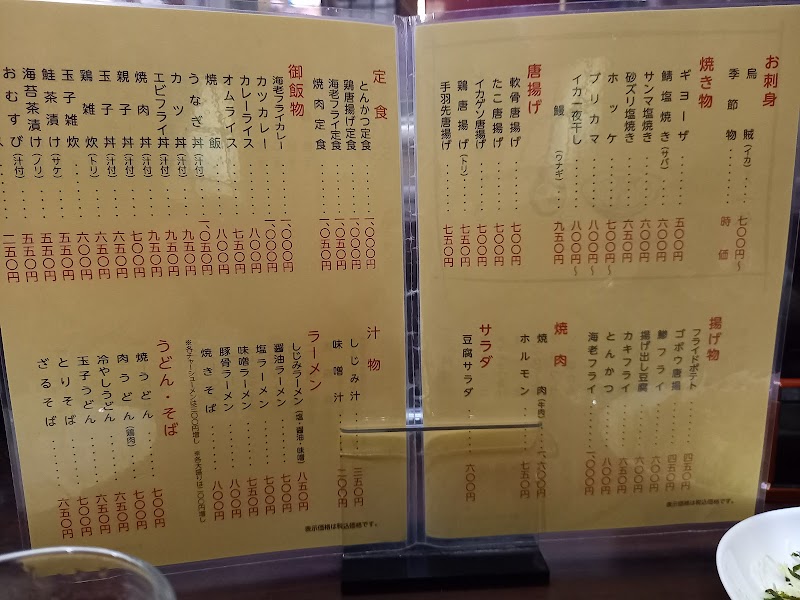 お刺身
烏賊(イカ)・・・・七〇〇円～
季節物・・・・時価
焼き物
ギヨーザ・・・・五〇〇円
鯖塩焼き(サバ)・・・・六〇〇円
サンマ塩焼き・・・・六〇〇円
砂ズリ塩焼き・・・・六五〇円
ホッケ・・・・七〇〇円～
ブリカマ・・・・八〇〇円～
イカ一夜干し・・・・八〇〇円～
鰻(ウナギ)・・・・九五〇円
唐揚げ
軟骨唐揚げ・・・・七〇〇円
たこ唐揚げ・・・・七〇〇円
イカゲソ唐揚げ・・・・七〇〇円
鶏唐揚げ(トリ)・・・・七五〇円
手羽先唐揚げ・・・・七五〇円
揚げ物
フライドポテト・・・・四五〇円
ゴボウ唐揚・・・・四五〇円
鯵フライ・・・・六〇〇円
揚げ出し豆腐・・・・六〇〇円
カキフライ・・・・六五〇円
とんかつ・・・・八〇〇円
海老フライ・・・・一、〇〇〇円
焼肉
焼肉(牛肉)・・・・一、六〇〇円
ホルモン・・・・七五〇円
サラダ
豆腐サラダ・・・・六〇〇円
表示価格は税込価格です。
定食
とんかつ定食・・・・一、〇〇〇円
鶏唐揚げ定食・・・・一、〇〇〇円
海老フライ定食・・・・一、〇五〇円
焼肉定食・・・・一、〇五〇円
御飯物
海老フライカレー・・・・一、〇〇〇円
カツカレー・・・・一、〇〇〇円
カレーライス・・・・八〇〇円
オムライス・・・・七五〇円
焼飯・・・・八〇〇円
うなぎ丼(汁付)・・・・一、〇五〇円
カツ丼(汁付)・・・・九五〇円
エビフライ丼(汁付)・・・・九五〇円
焼肉丼(汁付)・・・・九五〇円
親子丼(汁付)・・・・七〇〇円
玉子丼(汁付)・・・・六五〇円
鶏雑炊(トリ)・・・・六〇〇円
玉子雑炊・・・・五五〇円
鮭茶漬け(サケ)・・・・五五〇円
海苔茶漬け(ノリ)・・・・五五〇円
おむすび(汁付)・・・・二五〇円
汁物
しじみ汁・・・・三五〇円
味噌汁・・・・二〇〇円
ラーメン
しじみラーメン(塩・醤油・味噌)・・・・八五〇円
醤油ラーメン・・・・七〇〇円
塩ラーメン・・・・七〇〇円
味噌ラーメン・・・・七五〇円
豚骨ラーメン・・・・八〇〇円
焼きそば・・・・八〇〇円
※各チャーシューメンは三〇〇円増し ※各大盛りは二〇〇円増し
うどん・そば
焼うどん・・・・七〇〇円
肉うどん(鶏肉)・・・・七〇〇円
冷やしうどん・・・・六五〇円
玉子うどん・・・・六五〇円
とりそば・・・・七〇〇円
ざるそば・・・・六五〇円
表示価格は税込価格です。